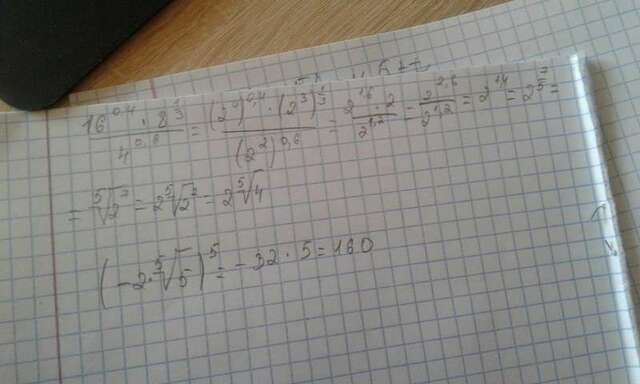 16^{0,4} · 8^{1/3} / 4^{0,6} = (2^4)^{0,4} · (2^3)^{1/3} / (2^2)^{0,6} = 2^{1,6} · 2 / 2^{1,2} = 2^{2,6} / 2^{1,2} = 2^{1,4} = 2^{7/5} =
= ⁵√2^7 = 2⁵√2^2 = 2⁵√4
(-2·⁵√5)^5 = -32 · 5 = 160